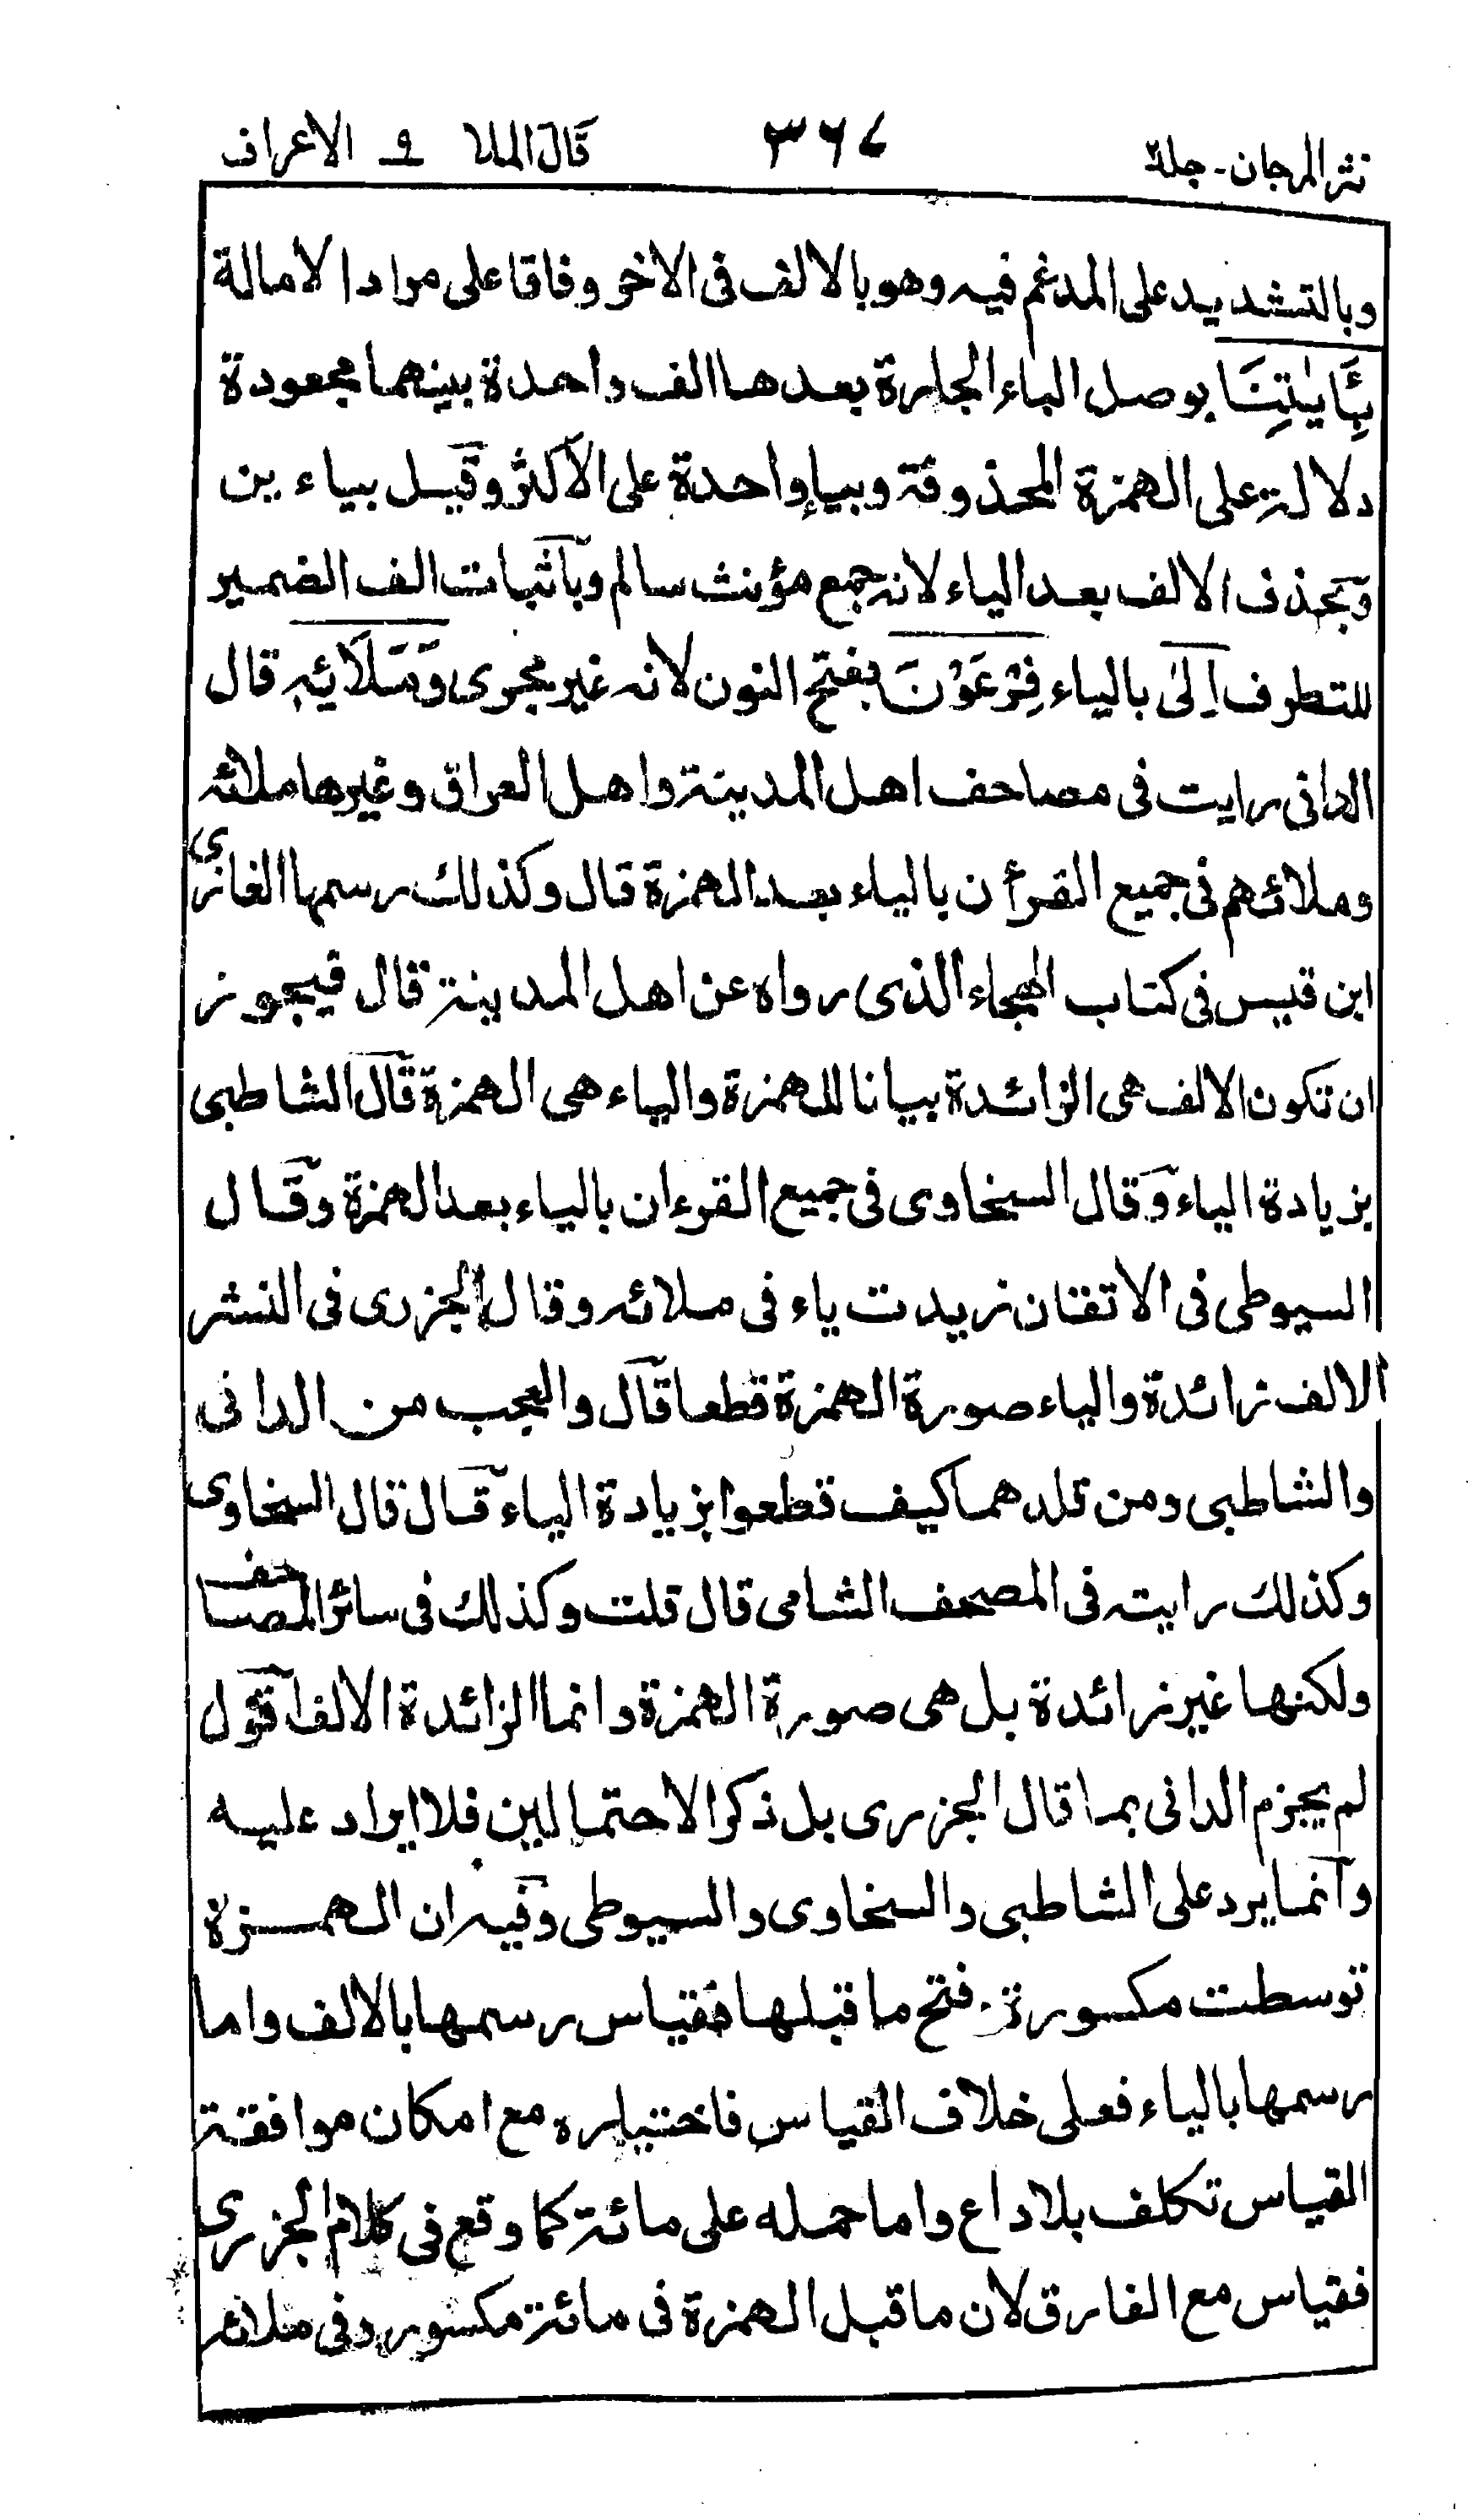 نثر المرجان - جلد ٢ ٣٦٧ قال الملا ٩ الاعراف
وبالتشديد على المدغم فيه وهو بالالف فى الاخر وفاقا على مراد الامالة
بِـَٔايٰتِنَا بوصل الباء الجارة بعدها الف واحدة بينهما مجعودة
دلالة على الهمزة المحذوفة وبياء واحدة على الاكثر وقيل بياء ين
وبحذف الالف بعد الياء لانه جمع مؤنث سالم وباثبات الف الضمير
للتطرف اِلىٰ بالياء فِرْعَوْنَ بفتح النون لانه غير مجرى وَمَلَائِهٖ قال
الدانى رايت فى مصاحف اهل المدينة واهل العراق وغيرها ملائه
وملائهم فى جميع القرأن بالياء بعد الهمزة قال وكذلك رسمها الغازى
ابن قيس فى كتاب الهجاء الذى رواه عن اهل المدينة قال فيجوز
ان تكون الالف هى الزائدة بيانا للهمزة والياء هى الهمزة قال الشاطبى
بزيادة الياء وقال السخاوى فى جميع القرءان بالياء بعد الهمزة وقال
السيوطى فى الاتقان زيدت ياء فى ملائه وقال الجزرى فى النشر
الالف زائدة والياء صورة الهمزة قطعا قال والعجب من الدانى
والشاطبى ومن قلدهما كيف قطعوا بزيادة الياء قال قال السخاوى
وكذلك رايته فى المصحف الشامى قال قلت وكذلك فى سائر المصاحف
ولكنها غير زائدة بل هى صورة الهمزة وانما الزائدة الالف اقول
لم يجزم الدانى بما قال الجزرى بل ذكر الاحتمالين فلا ايراد عليه
وانما يرد على الشاطبى والسخاوى والسيوطى وفيه ان الهمزة
توسطت مكسورة فتح ما قبلها فقياس رسمها بالالف واما
رسمها بالياء فعلى خلاف القياس فاختياره مع امكان موافقة
القياس تكلف بلا داع واما حمله على مائة كما وقع فى كلام الجزرى
فقياس مع الفارق لان ما قبل الهمزة فى مائة مكسور وفى ملائه